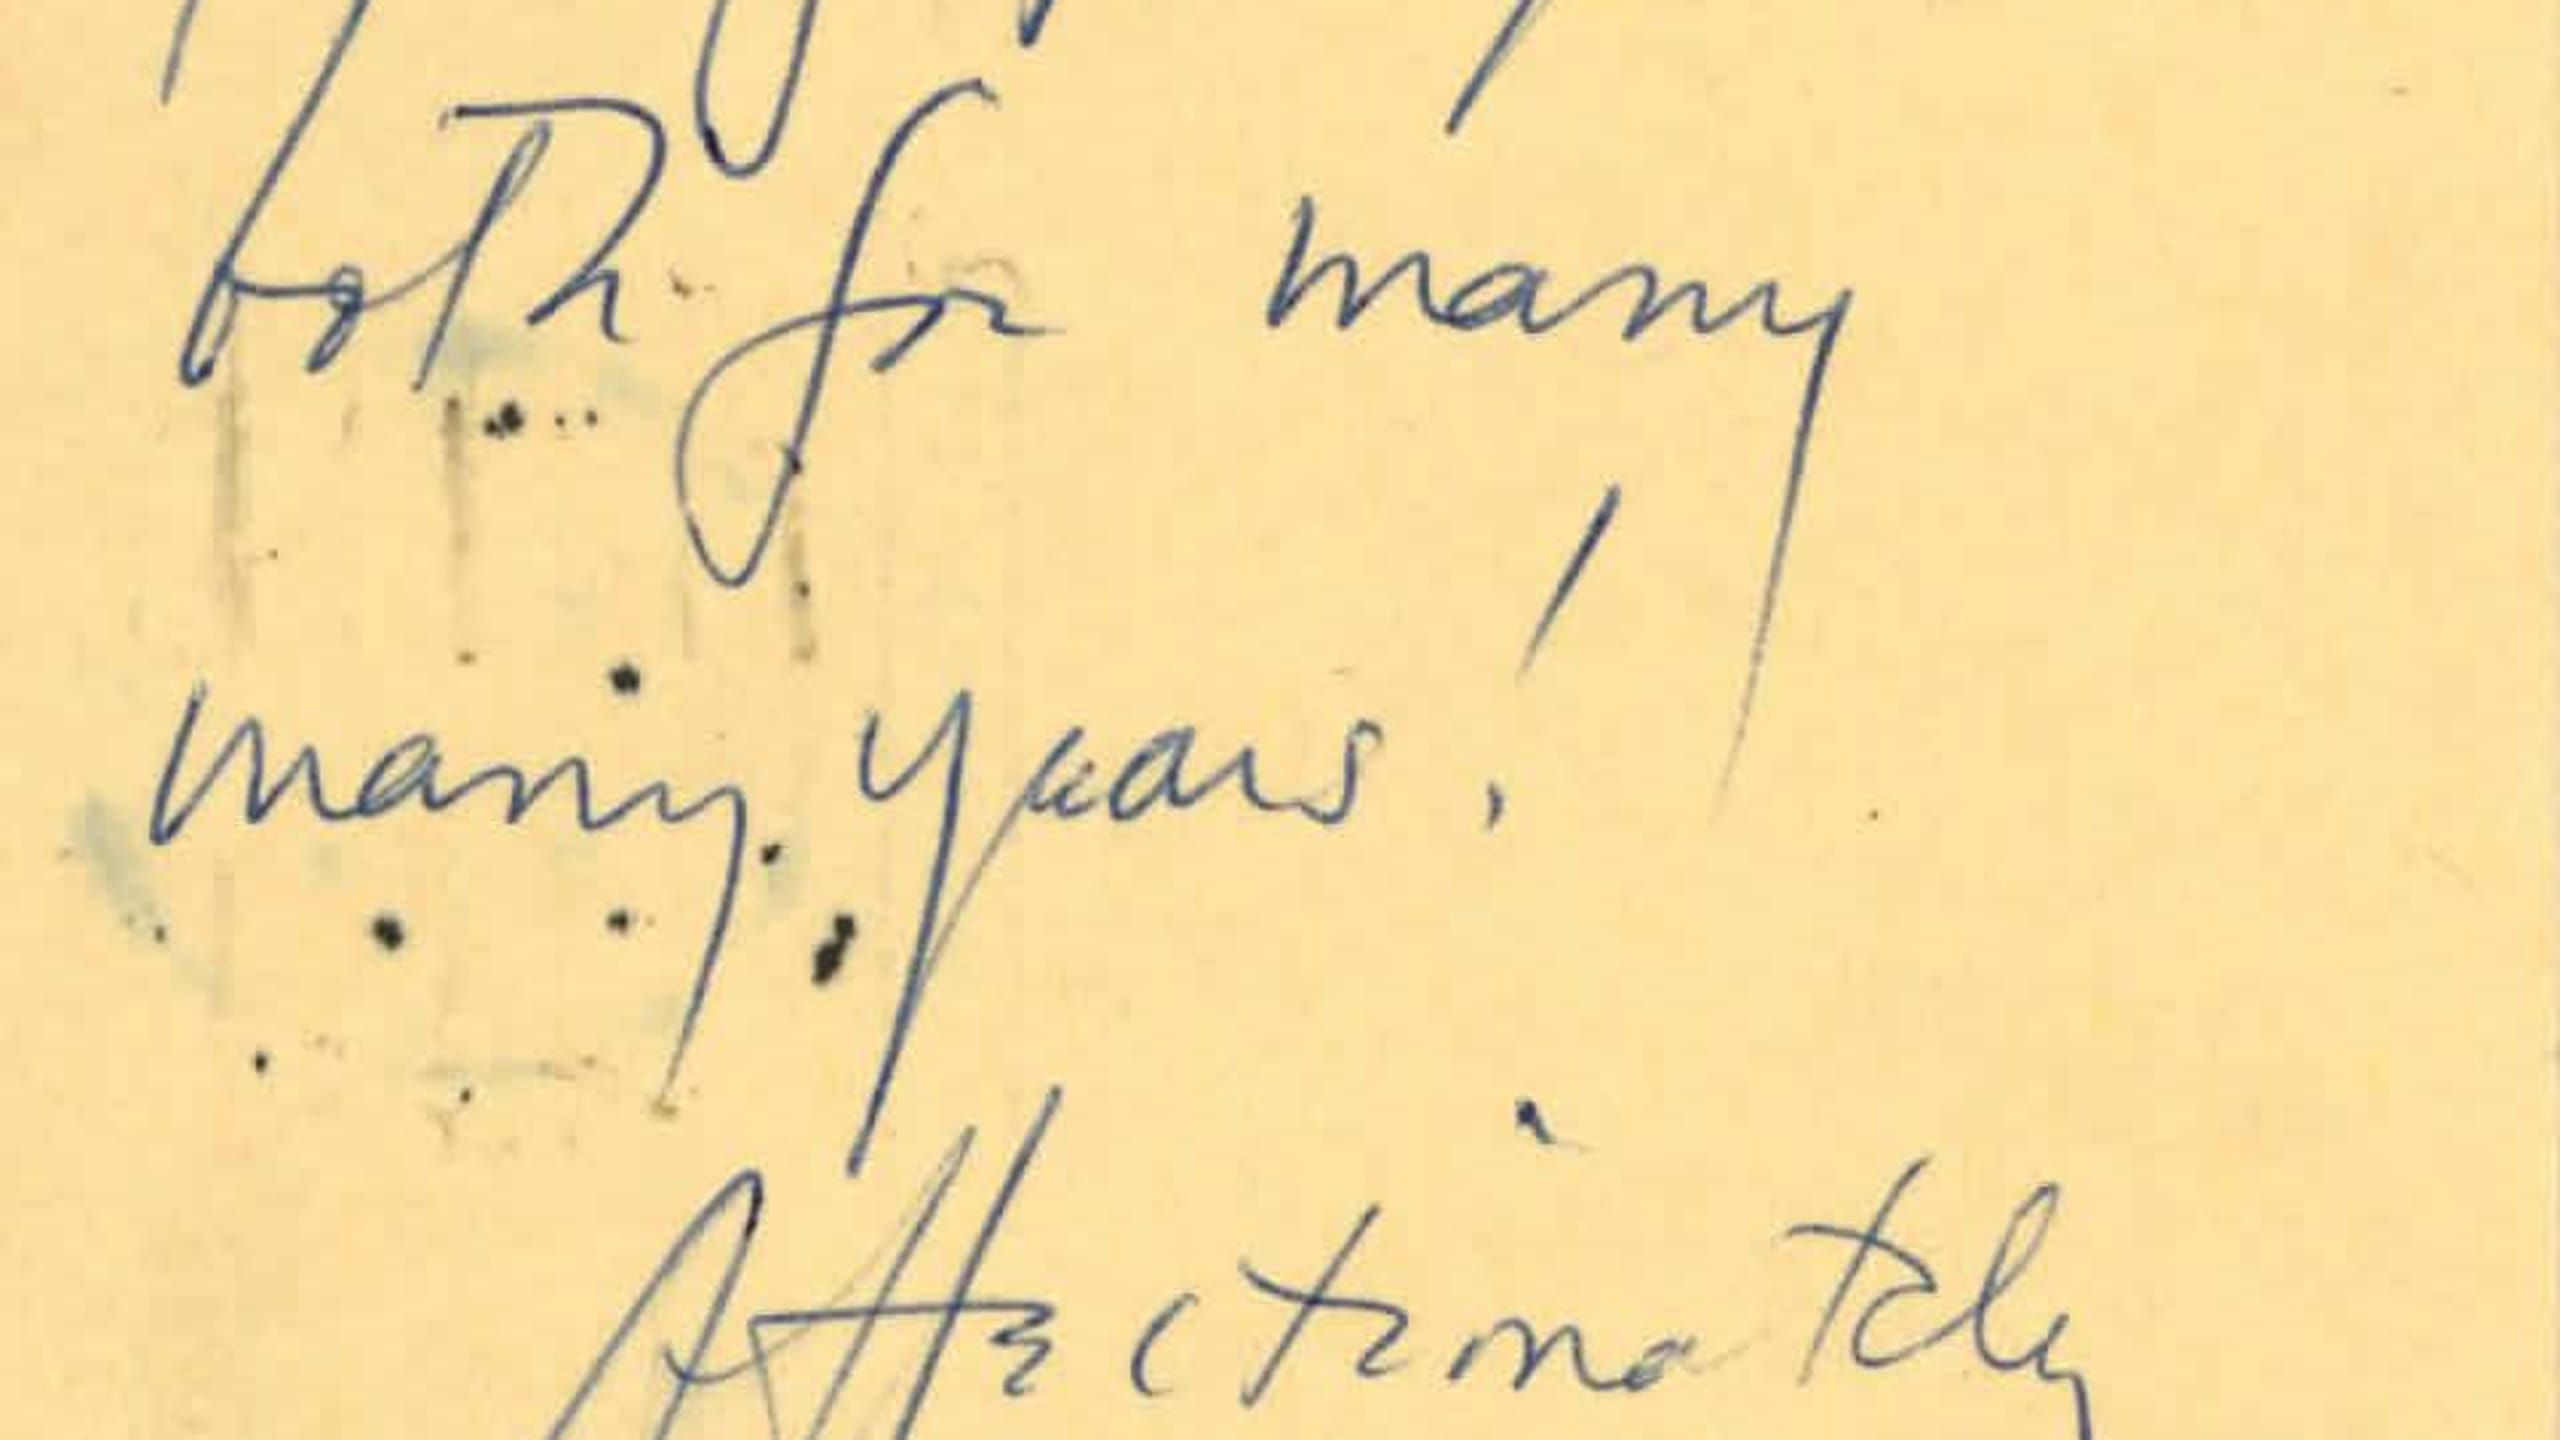 both for many
many years!
Affectionately